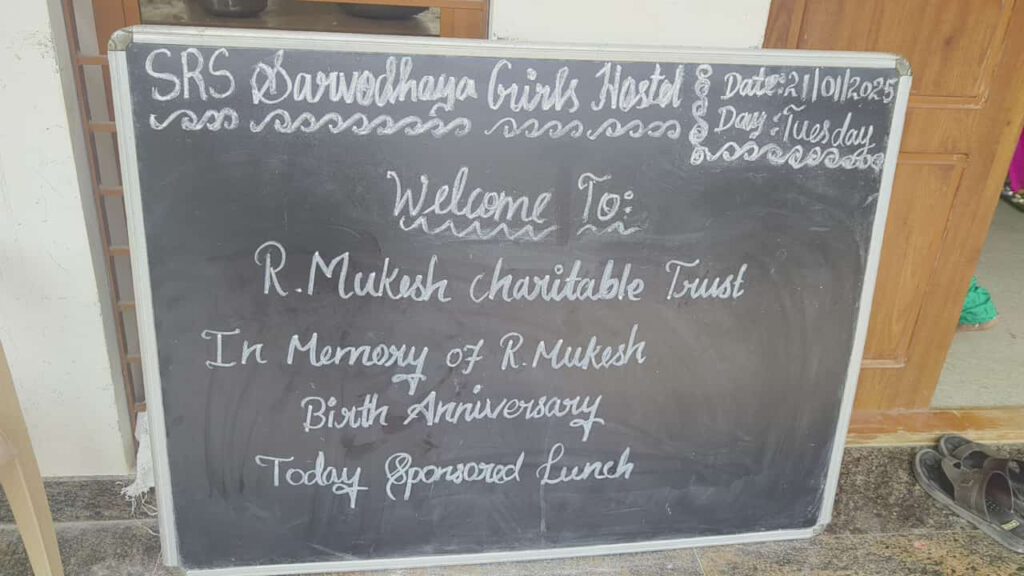 SRS Sarvodhaya Girls Hostel
Date: 21/01/2025
Day: Tuesday
Welcome To:
R. Mukesh charitable Trust
In Memory of R. Mukesh
Birth Anniversary
Today Sponsored Lunch